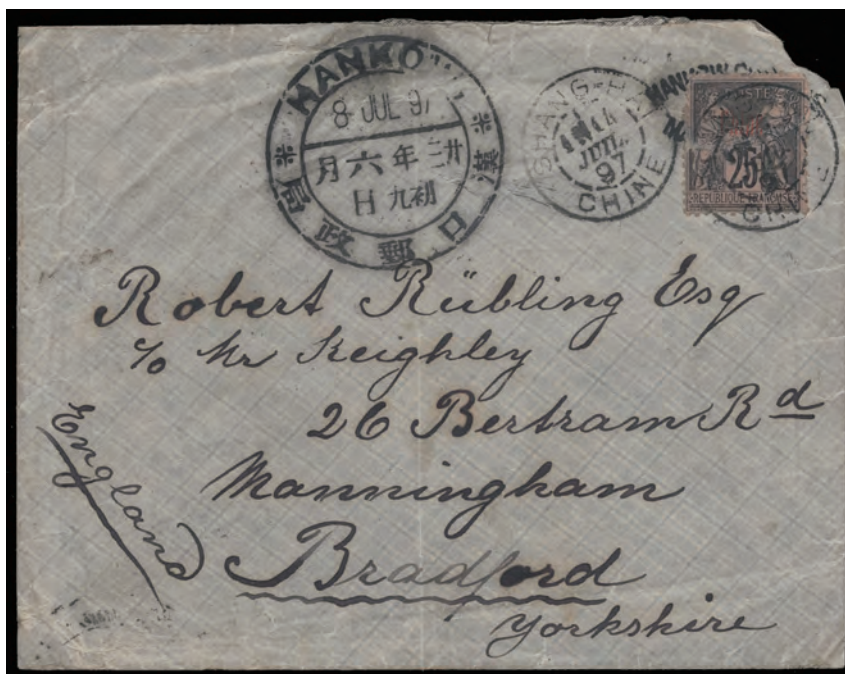 HANKOW
8 JUL 97
廿三年六月
初九日
漢口郵政局
SHANG-HAI
JUIL.
97
CHINE
HANKOW
POSTES
25
REPUBLIQUE FRANÇAISE
CHINE
Robert Rübling Esq
c/o Mr Keighley
26 Bertram Rd
Manningham
Bradford
Yorkshire
England